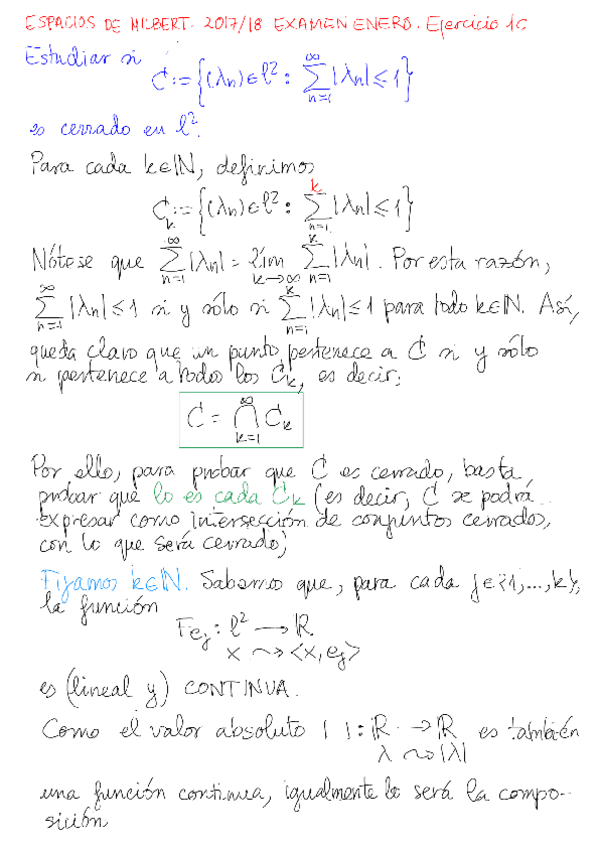 ESPACIOS DE HILBERT. 2017/18 EXAMEN ENERO. Ejercicio 1c
Estudiar si
C := {(λn) ∈ l² : ∑_{n=1}^{∞} |λn| ≤ 1}
es cerrado en l².
Para cada k∈ℕ, definimos
C_k := {(λn) ∈ l² : ∑_{n=1}^{k} |λn| ≤ 1}
Nótese que ∑_{n=1}^{∞} |λn| = lím_{k→∞} ∑_{n=1}^{k} |λn|. Por esta razón,
∑_{n=1}^{∞} |λn| ≤ 1 si y sólo si ∑_{n=1}^{k} |λn| ≤ 1 para todo k∈ℕ. Así,
queda claro que un punto pertenece a C si y sólo
si pertenece a todos los C_k, es decir,
C = ⋂_{k=1}^{∞} C_k
Por ello, para probar que C es cerrado, basta
probar que lo es cada C_k (es decir, C se podrá
expresar como intersección de conjuntos cerrados,
con lo que será cerrado)
Fijamos k∈ℕ. Sabemos que, para cada j∈{1,...,k},
la función
F_{e_j} : l² → ℝ
x ⇝ <x, e_j>
es (lineal y) CONTINUA.
Como el valor absoluto | | : ℝ → ℝ es también
λ ⇝ |λ|
una función continua, igualmente lo será la compo-
sición